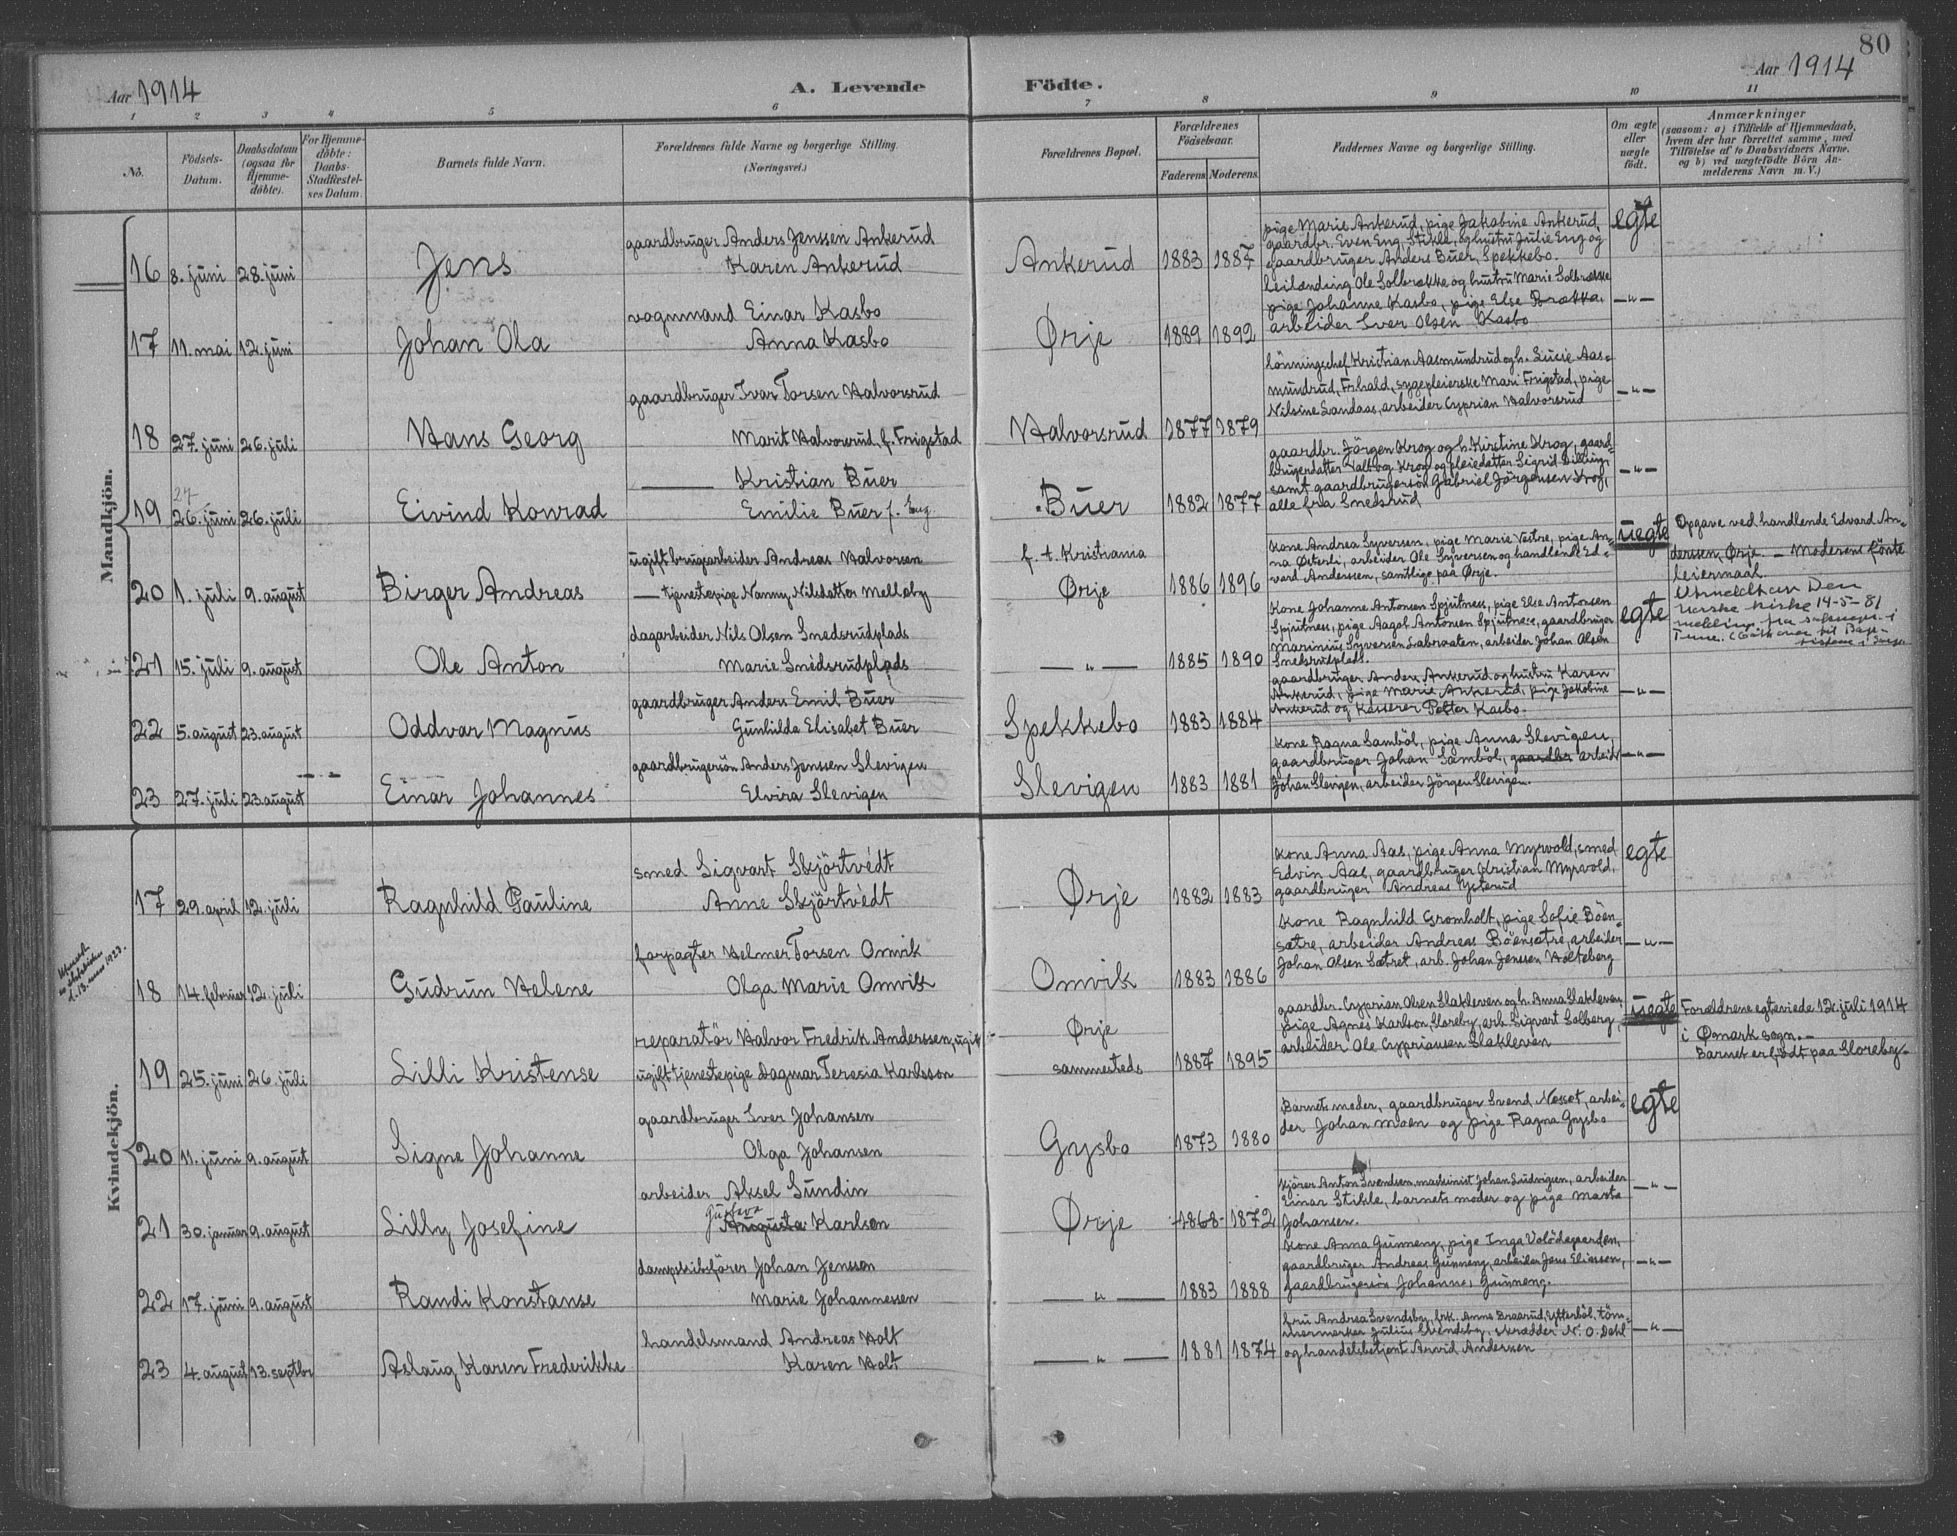 80
Aar 1914
A. Levende Födte.
Aar 1914
1 2 3 4 5 6 7 8 9 10 11
No.
Födsels-Datum.
Daabsdatum (ogsaa for Hjemme-döbte).
For Hjemme-döbte: Daabs-Stadfæstel-ses Datum.
Barnets fulde Navn.
Forældrenes fulde Navne og borgerlige Stilling.
(Næringsvei.)
Forældrenes Bopæl.
Forældrenes Födselsaar.
Faderens. Moderens.
Faddernes Navne og borgerlige Stilling.
Om ægte eller uægte födt.
Anmærkninger
(saasom: a) i Tilfælde af Hjemmedaab,
hvem der har forrettet samme, med
Tilföielse af to Daabsvidners Navne,
og b) ved uægtefödte Börn An-
melderens Navn m. V.)
Mandkjön.
16 8. juni 28. juni Jens
gaardbruger Anders Jenssen Ankerud
Karen Ankerud
Ankerud 1883 1887
pige Marie Ankerud, pige Jakobine Ankerud,
gaardbr. Even Eng, Stikle, og hustru Julie Eng og
gaardbruger Anders Buer, Spekkebo.
egte
17 11. mai 12. juni Johan Ola
vognmand Einar Kasbo
Anna Kasbo
Ørje 1889 1892
leilænding Ole Solbrække og hustru Marie Solbrække
pige Johanne Kasbo, pige Else Brække,
arbeider Iver Olsen Kasbo
—"—
18 27. juni 26. juli Hans Georg
gaardbruger Ivar Torsen Halvorsrud
Marit Halvorsrud, f. Frigstad
Halvorsrud 1877 1879
lönningschef Kristian Aasmundrud og h. Lucie Aas-
mundrud, Frhald, sygepleierske Mari Frigstad, pige
Nilsine Sandaas, arbeider Cyprian Halvorsrud
—"—
19 24 26. juni 26. juli Eivind Konrad
—— Kristian Buer
Emilie Buer f. Eng
Buer 1882 1877
gaardbr. Jörgen Krog og h. Kirstine Krog, gaard-
brugerdatter Valborg Krog og pleiedatter Sigrid Billing,
samt gaardbrugersön Gabriel Jörgensen Krog,
alle fra Snedsrud
—"—
20 1. juli 9. august Birger Andreas
ugift brugsarbeider Andreas Halvorsen
— tjenestepige Nanny Nilsdatter Melleby
f. t. Kristiania
Ørje 1886 1896
Kone Andrea Syversen, pige Marie Vestre, pige An-
na Österli, arbeider Ole Syversen og handlende Ed-
vard Anderssen, samtlige paa Ørje.
uegte
Opgave ved handlende Edvard An-
derssen, Ørje. — Moderens 1ste
leiermaal.
Utmeldt av Den
norske kirke 14-5-81
21 15. juli 9. august Ole Anton
dagarbeider Nils Olsen Snedsrudplads
Marie Snedsrudplads
—"— 1885 1890
Kone Johanne Antonsen Spjutness, pige Else Antonsen
Spjutness, pige Aagot Antonsen Spjutness, gaardbruger
Marinius Syversen Labraaten, arbeider Johan Olsen
Snedsrudplads.
egte
22 5. august 23. august Oddvar Magnus
gaardbruger Anders Emil Buer
Gunhilda Elisabet Buer
Spekkebo 1883 1884
gaardbruger Anders Ankerud og hustru Karen
Ankerud, pige Marie Ankerud, pige Jakobine
Ankerud og kasserer Petter Kasbo.
—"—
23 27. juli 23. august Einar Johannes
gaardbrugersön Anders Jenssen Slevigen
Elvira Slevigen
Slevigen 1883 1881
Kone Ragna Samböl, pige Anna Slevigen,
gaardbruger Johan Samböl, gaardbr arbeid
Johan Slevigen, arbeider Jörgen Slevigen.
—"—
Kvindekjön.
17 29. april 12. juli Ragnhild Pauline
smed Sigvart Skjörtvedt
Anne Skjörtvedt
Ørje 1882 1883
Kone Anna Aas, pige Anna Myrvold, smed
Edvin Aas, gaardbruger Kristian Myrvold,
gaardbruger Andreas Ysterud
egte
18 14. februar 12. juli Gudrun Helene
forpagter Helmer Torsen Omvik
Olga Marie Omvik
Omvik 1883 1886
Kone Ragnhild Gromholt, pige Sofie Böen-
sætre, arbeider Andreas Böensætre, arbeider
Johan Olsen Sætret, arb. Johan Jenssen Holteberg
—"—
19 25. juni 26. juli Lilli Kristense
reparatör Halvor Fredrik Anderssen, ugift
ugift tjenestepige Dagmar Teresia Karlsson
Ørje
sammesteds 1887 1895
gaardbr. Cyprian Olsen Slakleven og h. Anna Slakleven,
pige Agnes Karlson, Sloreby, arb. Sigvart Solberg,
arbeider Ole Cypriansen Slakleven
uegte
Forældrene egteviede 12. juli 1914
i Ømark sogn. —
Barnet er födt paa Sloreby.
20 11. juni 9. august Signe Johanne
gaardbruger Iver Johansen
Olga Johansen
Grysbo 1873 1880
Barnets moder, gaardbruger Svend Næsset, arbei-
der Johan Moen og pige Ragna Grysbo
egte
21 30. januar 9. august Lilly Josefine
arbeider Aksel Sundin
Gustava
Augusta Karlsen
Ørje 1868 1872
Kjörer Anton Svendsen, maskinist Johan Ludvigsen, arbeider
Einar Stikle, barnets moder og pige Marta
Johansen.
—"—
22 17. juni 9. august Randi Konstanse
dampskibsförer Johan Jenssen
Marie Johannessen
—"— 1883 1888
Kone Anna Gunneng, pige Inga Volödegaarden,
gaardbruger Andreas Gunneng, arbeider Jens Eliassen,
gaardbrugersön Johannes Gunneng.
—"—
23 4. august 13. septbr Aslaug Karen Frederikke
handelsmand Andreas Holt
Karen Holt
—"— 1881 1874
fru Andrea Svendsby, frk. Anne Braarud, Ytterböl, töm-
mermerker Julius Svendsby, skrædder N. O. Dahl
og handelsbetjent Arvid Andersen
—"—